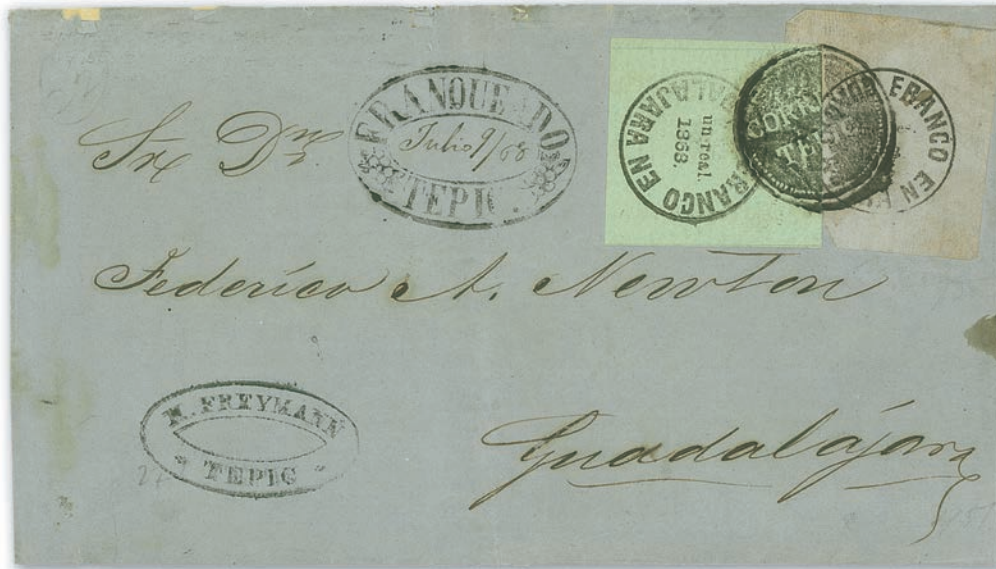 FRANQUEADO
Julio 9/68
TEPIC.
Sr Dn
FRANCO EN GUADALAJARA
un real.
1868.
CORREOS
TEPIC
FRANCO EN
Federico A. Newton
M. FREYMANN
TEPIC
Guadalajara